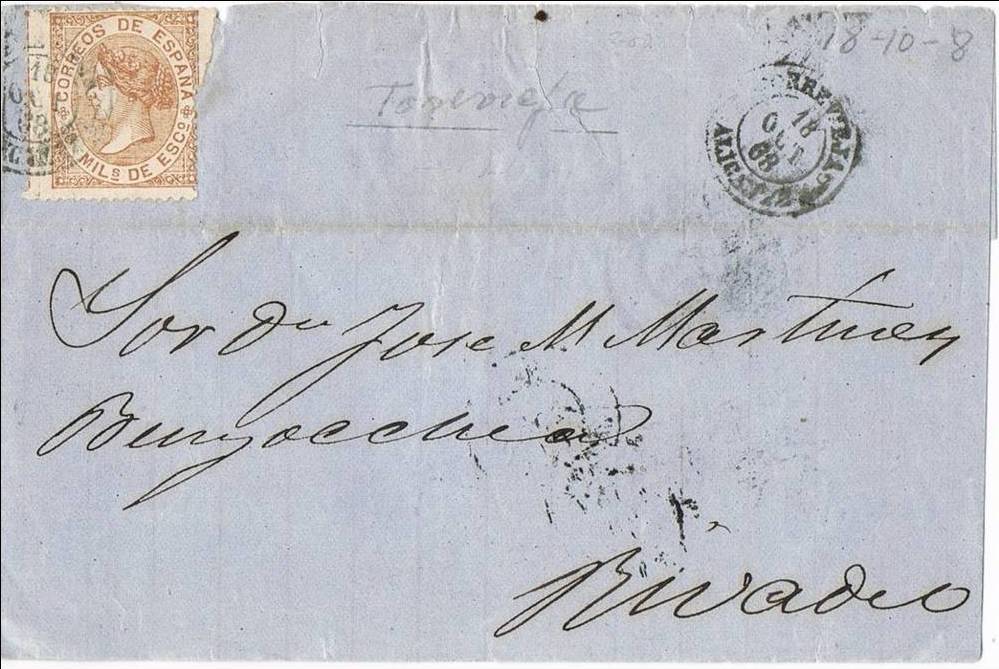 CORREOS DE ESPAÑA
MILS DE ESCO
18-10-8
Torrevieja
18
OCT
68
ALICANTE
Sor Dn Jose M Martinez
Rivadeo